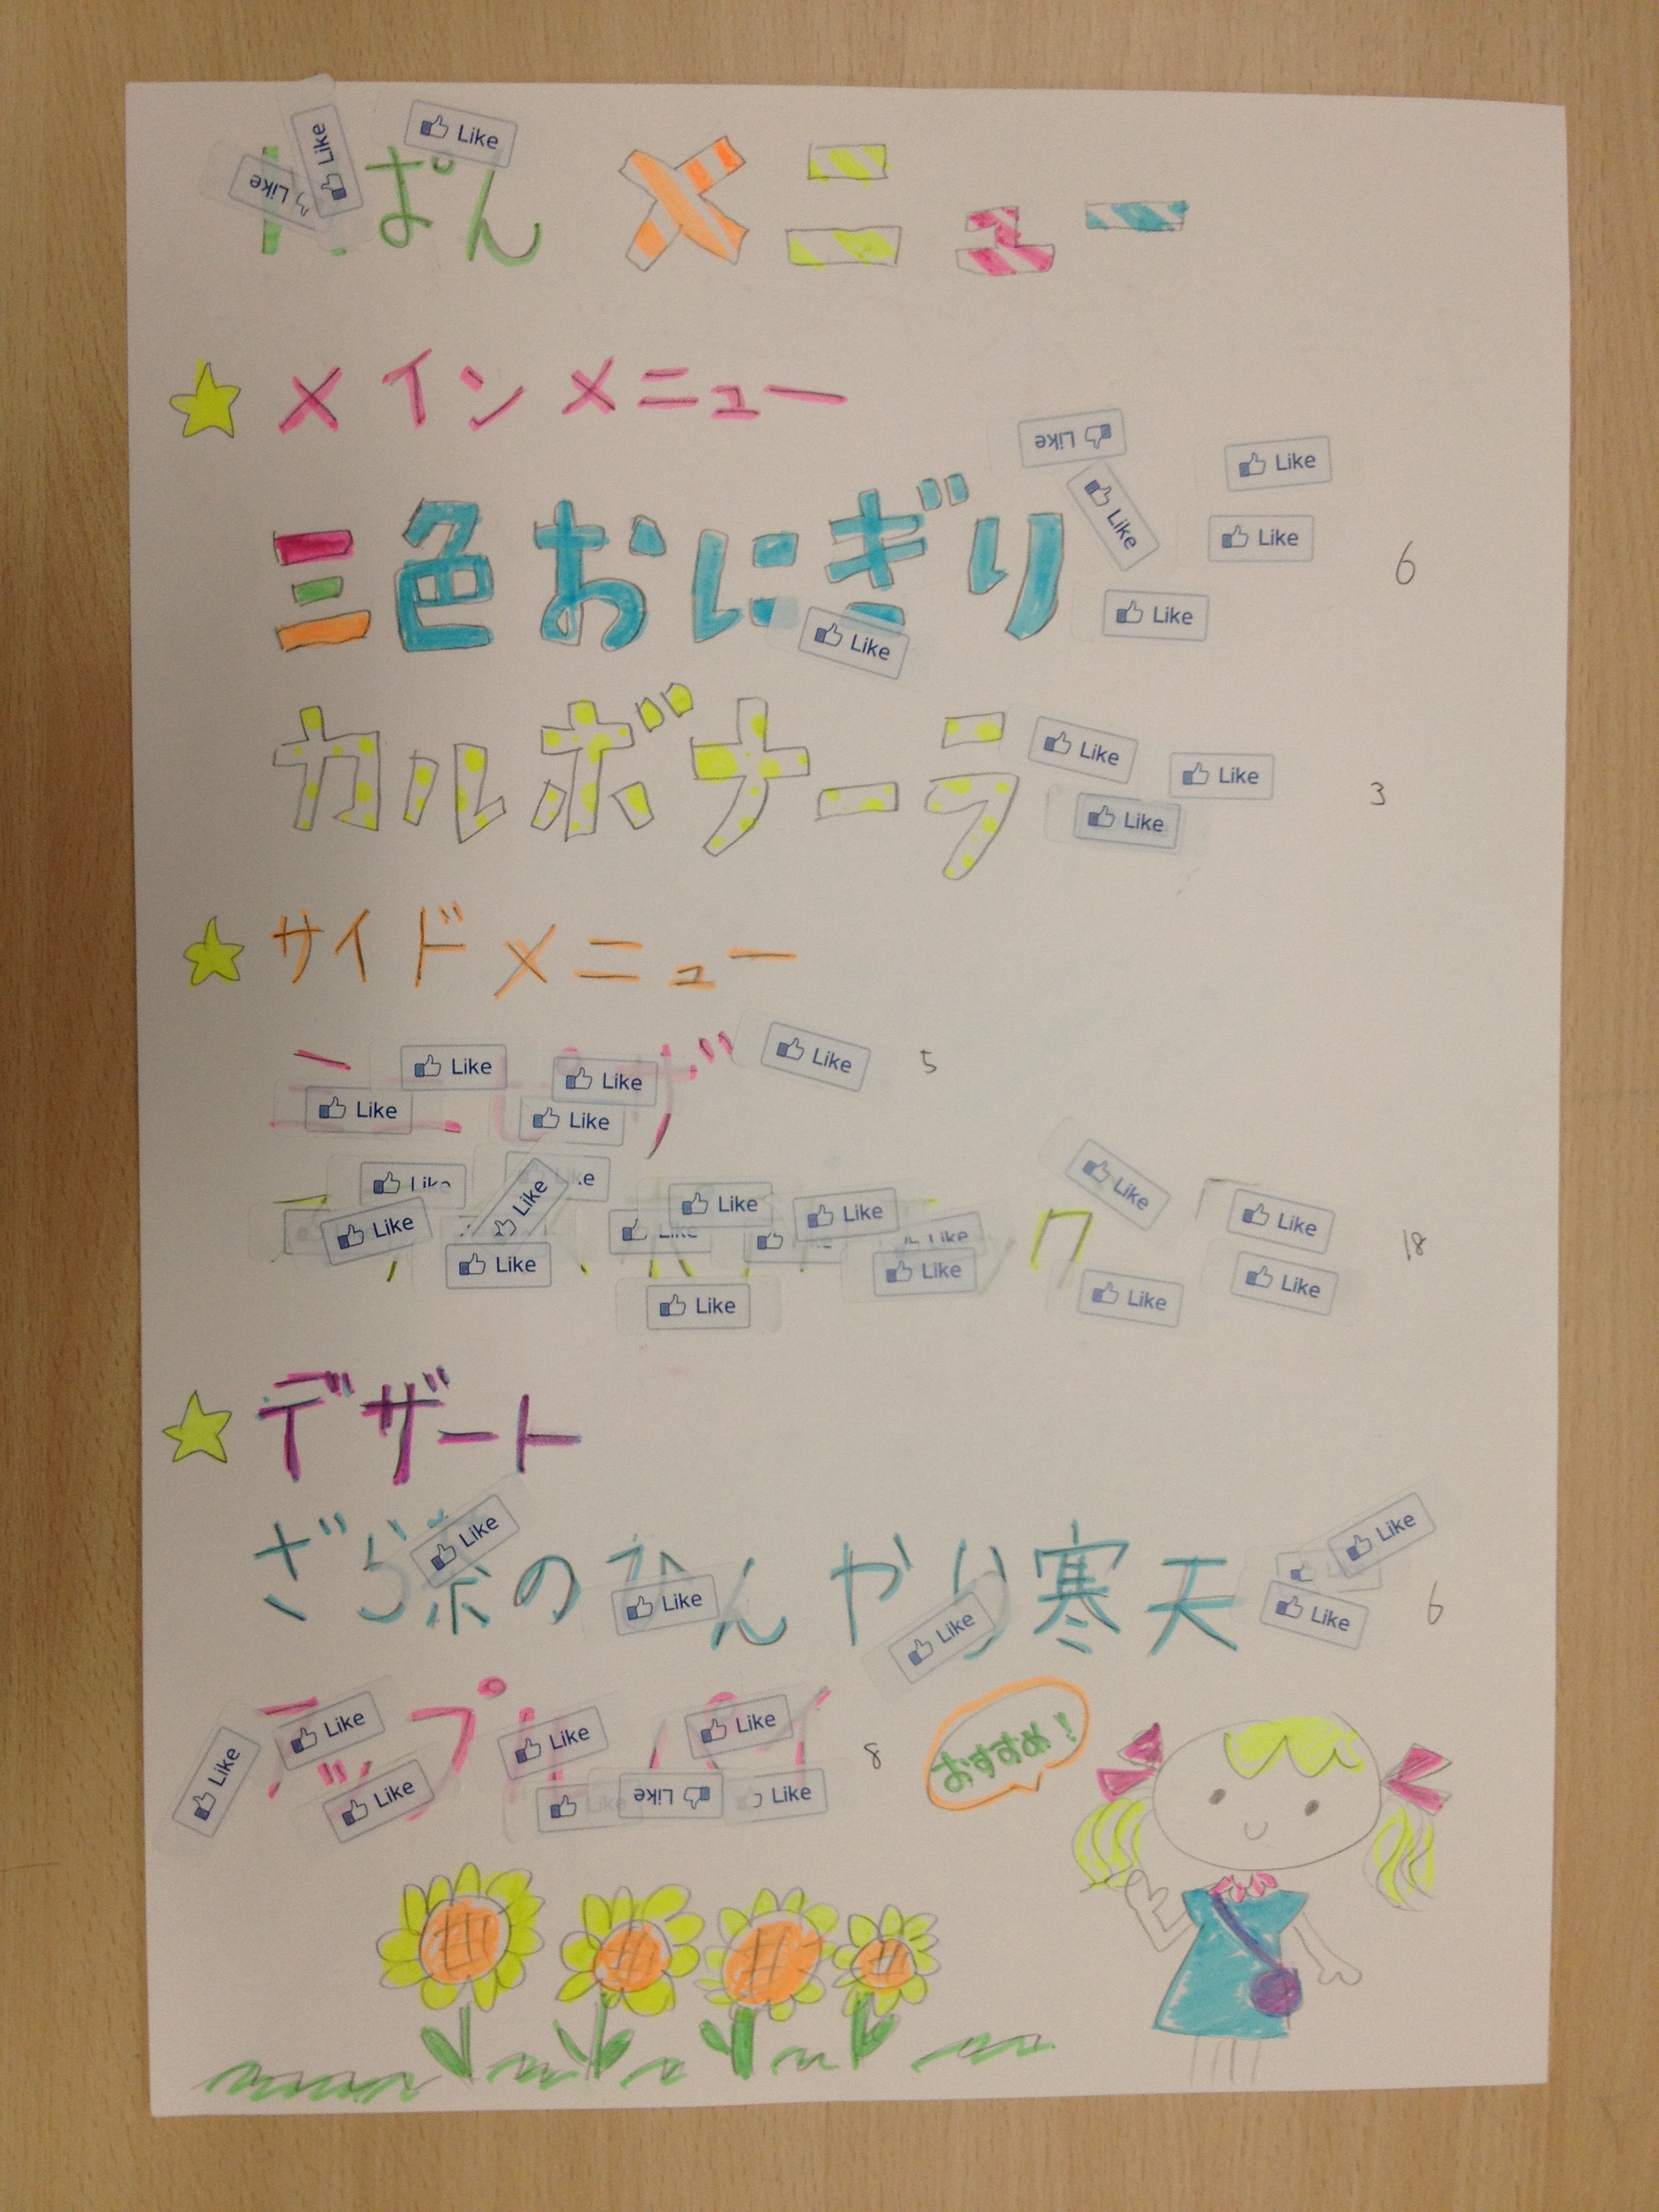 ぽん メニュー
メインメニュー
三色おにぎり 6
Like Like Like Like Like Like
カルボナーラ 3
Like Like Like
サイドメニュー
5
Like Like Like Like Like
18
Like Like Like Like Like Like Like Like Like Like Like Like Like Like
デザート
ざら茶のひんやり寒天 6
Like Like Like Like Like
アップルパイ 8
Like Like Like Like Like Like Like Like
おすすめ!